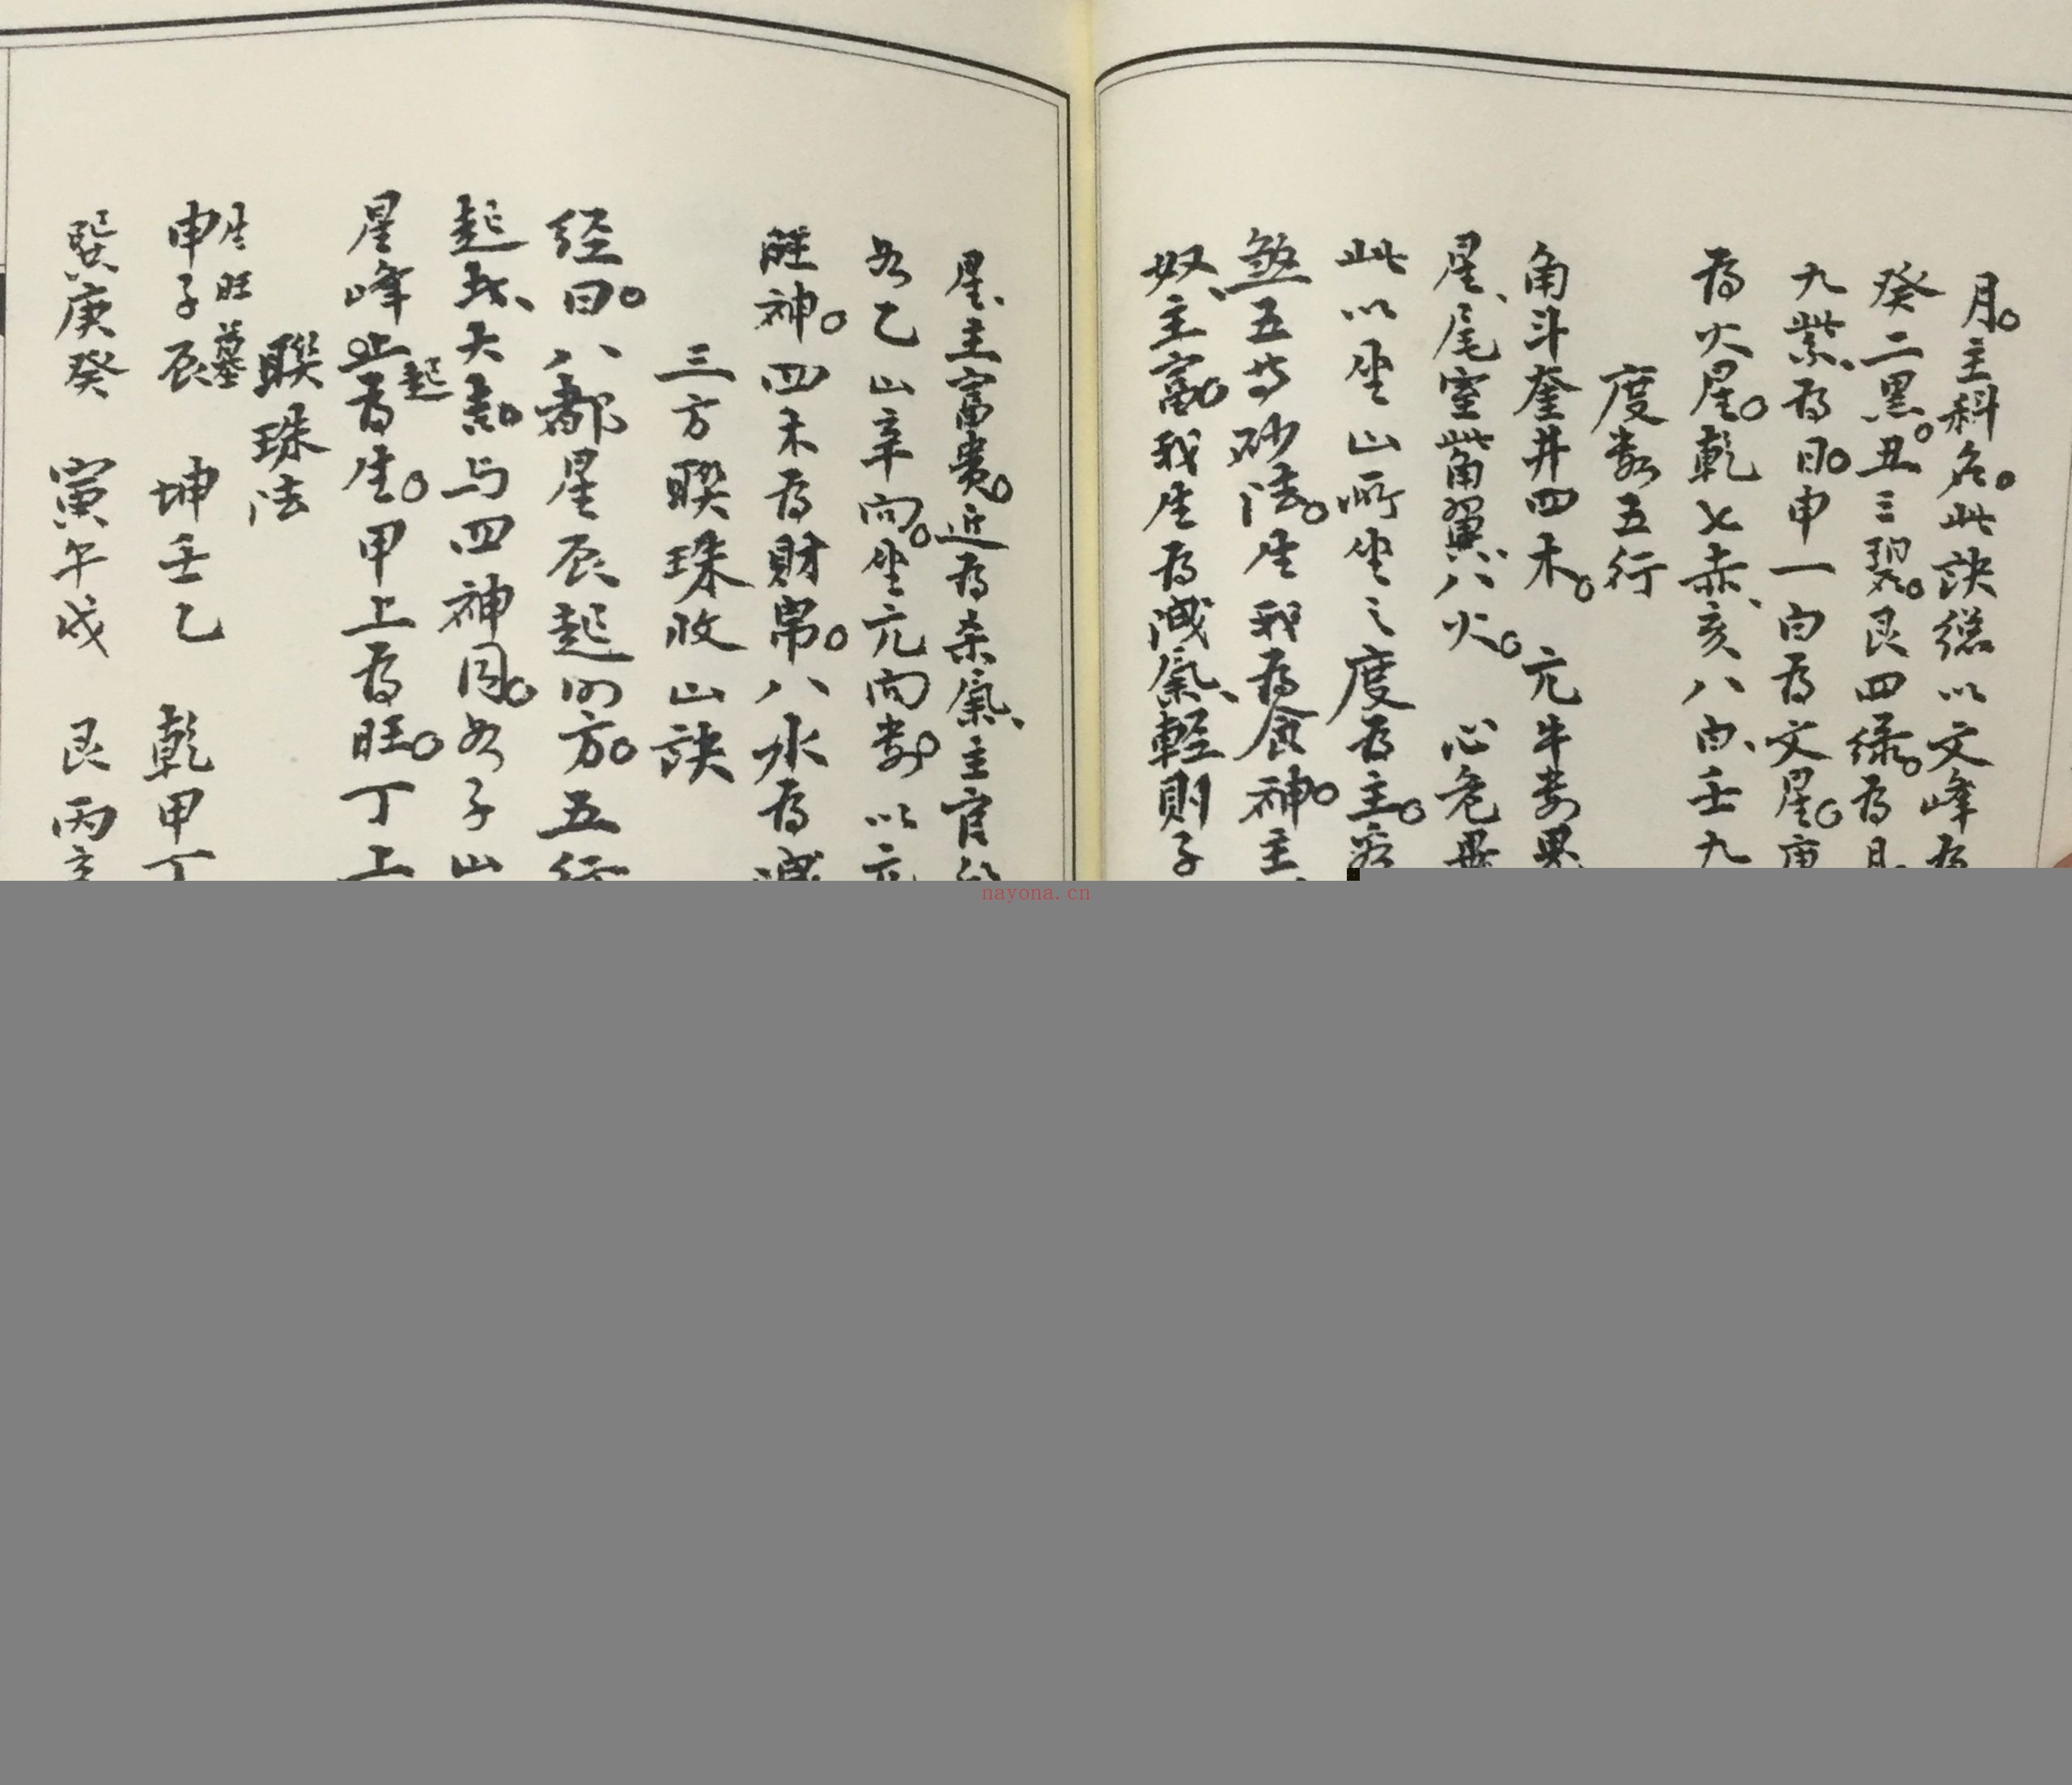 月。主科名。此訣總以文峰為
癸二黑。丑三碧。艮四綠。為月
九紫、為日。申一白為文星。庚
為火星。乾七赤、亥八白、壬九
度數五行
角斗奎井四木。 亢牛婁鬼
星、尾室觜翼、八火。 心危畢
此以坐山所坐之度為主。
煞五等砂法。生我為食神。主
奴、主富。我生為洩氣、輕則子
星、主富貴。近為杀氣、主官
如乙山辛向。坐亢向婁。以亢
旺神。四木為財帛。八水為洩
三方聯珠收山訣
经曰。八都星辰起的方。五行
起於大卦与四神同。如子山
星峰止起為生。甲上為旺。丁上
聯珠法
生旺墓
申子辰 坤壬乙 乾甲丁
巽庚癸 寅午戌 艮丙辛
nayona.cn